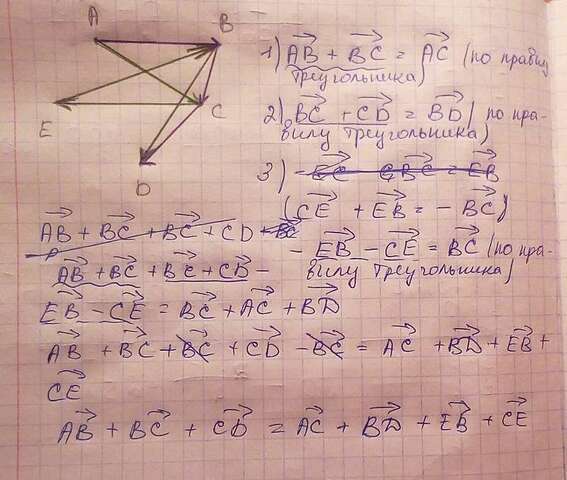 A
B
E
C
D
1) AB + BC = AC (по правилу
треугольника)
2) BC + CD = BD (по пра-
вилу треугольника)
3) - EC CBC = EB
(CE + EB = - BC)
- EB - CE = BC (по пра-
вилу треугольника)
AB + BC + BC + CD + BC
AB + BC + BC + CD -
EB - CE = BC + AC + BD
AB + BC + BC + CD - BC = AC + BD + EB +
CE
AB + BC + CD = AC + BD + EB + CE